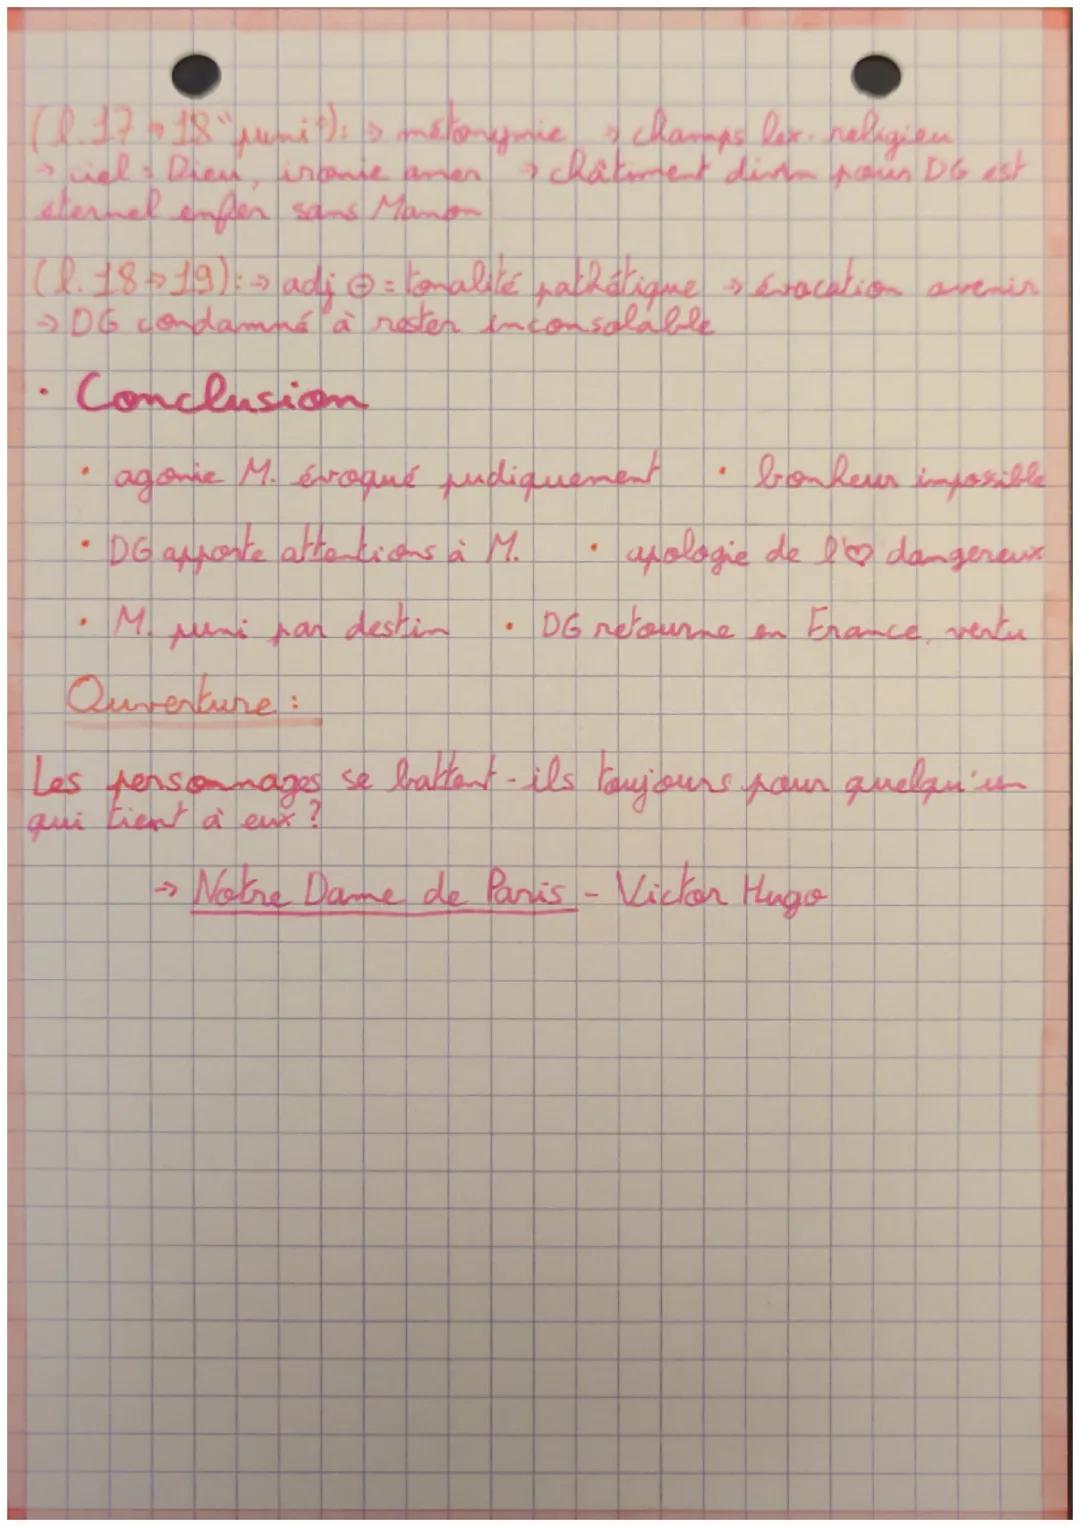 (l.17→18 "puni"): → métonymie → champs lex. religieu
→ ciel = Dieu, ironie amer → châtiment divin pour DG est
éternel enfer sans Manon
(l.18→19): → adj ⊕ = tonalité pathétique → évocation avenir
→ DG condamné à rester inconsolable
• Conclusion
• agonie M. évoqué pudiquement • bonheur impossible
• DG apporte attentions à M. • apologie de l'♡ dangereux
• M. puni par destin • DG retourne en France, vertu
Ouverture :
Les personnages se battent-ils toujours pour quelqu'un
qui tient à eux ?
→ Notre Dame de Paris - Victor Hugo